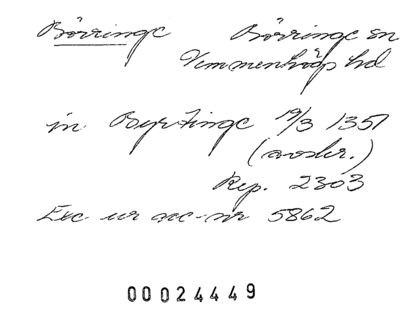 Börringe Börringe sn
Vemmenhögs hd
in Byrtinge 19/3 1351
(avskr.)
Rep. 2303
Exc. ur acc-nr 5862
00024449